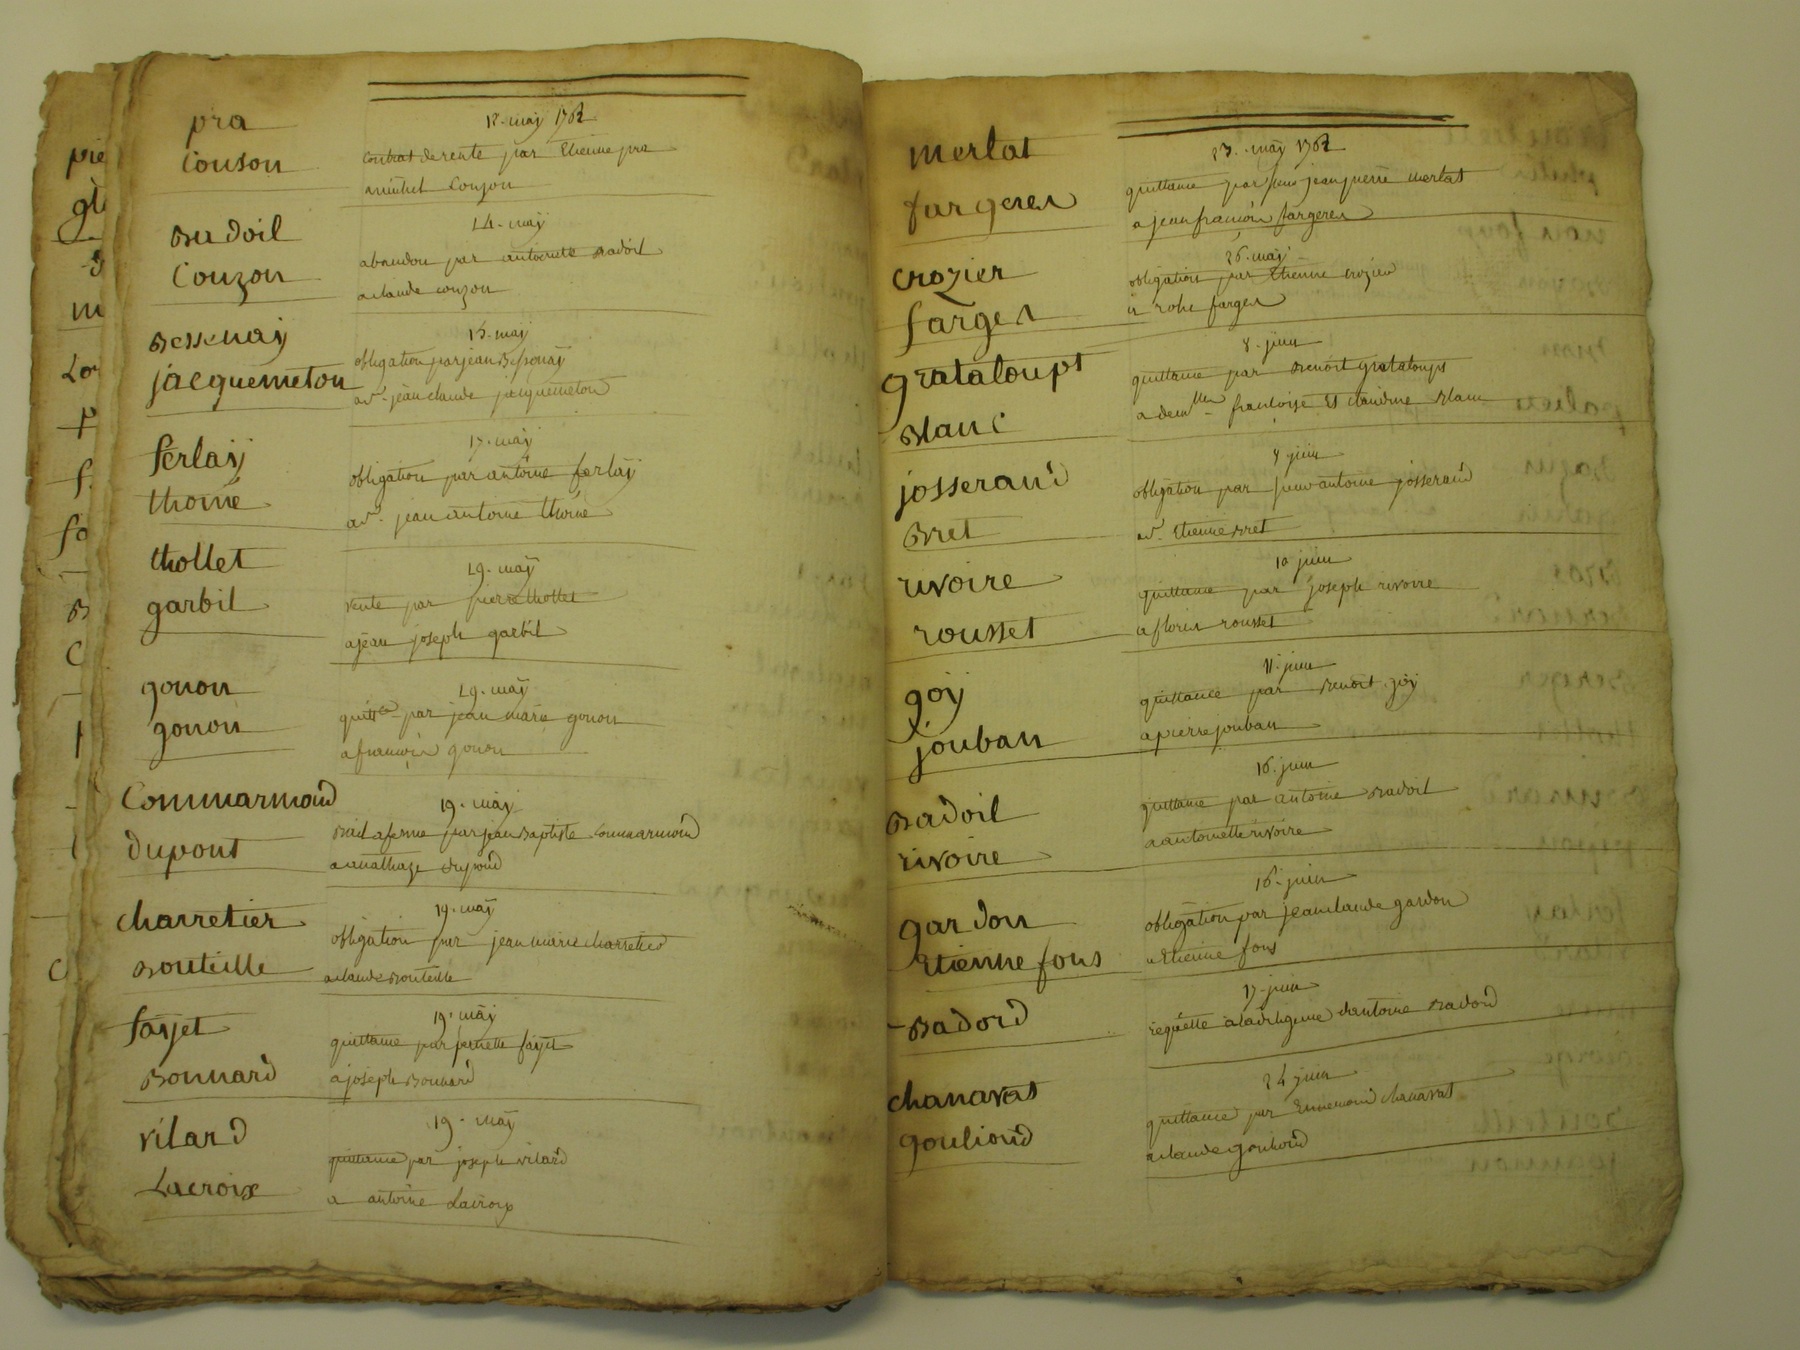 pra
Couson
12. maÿ 1762
Contrat de rente par Etienne pra
a michel Couzon
Badoil
Couzon
14. maÿ
abandon par antoinette Badoil
a claude couzon
Bessenaÿ
jacquemeton
15. maÿ
obligation par jean Bessenaÿ
a sr. jean claude jacquemeton
ferlaÿ
thomé
17. maÿ
obligation par antoine ferlaÿ
a sr. jean antoine thomé
thollet
garbil
19. maÿ
vente par pierre thollet
a jean joseph garbil
gonon
gonon
19. maÿ
quittce par jean marie gonon
a francois gonon
Commarmond
dupont
19. maÿ
Bail a ferme par jean Baptiste Commarmond
a mathieu dupond
charretier
Bouteille
19. maÿ
obligation par jean marie charretier
a claude Bouteille
faÿet
Bonnard
19. maÿ
quittance par pernette faÿet
a joseph Bonnard
vilard
Lacroix
19. maÿ
quittance par joseph vilard
a antoine Lacroix
merlat
fargeres
23. maÿ 1762
quittance par jean pierre merlat
a jean francois fargeres
crozier
farges
26. maÿ
obligation par Etienne crozier
a farges
grataloups
Blanc
8. juin
quittance par Benoit grataloups
a demlles francoise et claudine Blanc
josserand
Bret
8 juin
obligation par antoine josserand
a sr. Etienne Bret
rivoire
rousset
10 juin
quittance par joseph rivoire
a floris rousset
goÿ
jouban
11. juin
quittance par Benoit goÿ
a pierre jouban
Badoil
rivoire
16. juin
quittance par antoine Badoil
a antoinette rivoire
gardon
Etienne fons
16. juin
obligation par jean claude gardon
a Etienne fons
Badord
17. juin
requette a la diligence dantoine Badord
chanavas
gouliond
24 juin
quittance par Ennemond chanavas
a claude gouliond